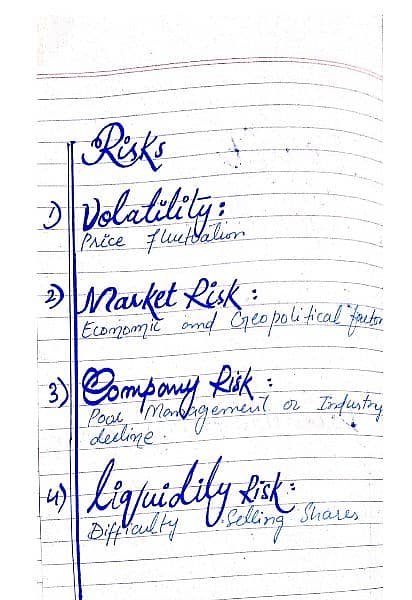 Risks
1) Volatility:
Price fluctuation
2) Market Risk:
Economic and Geopolitical factor
3) Company Risk:
Poor Management or Industry
decline.
4) Liquidity Risk:
Difficulty Selling Shares